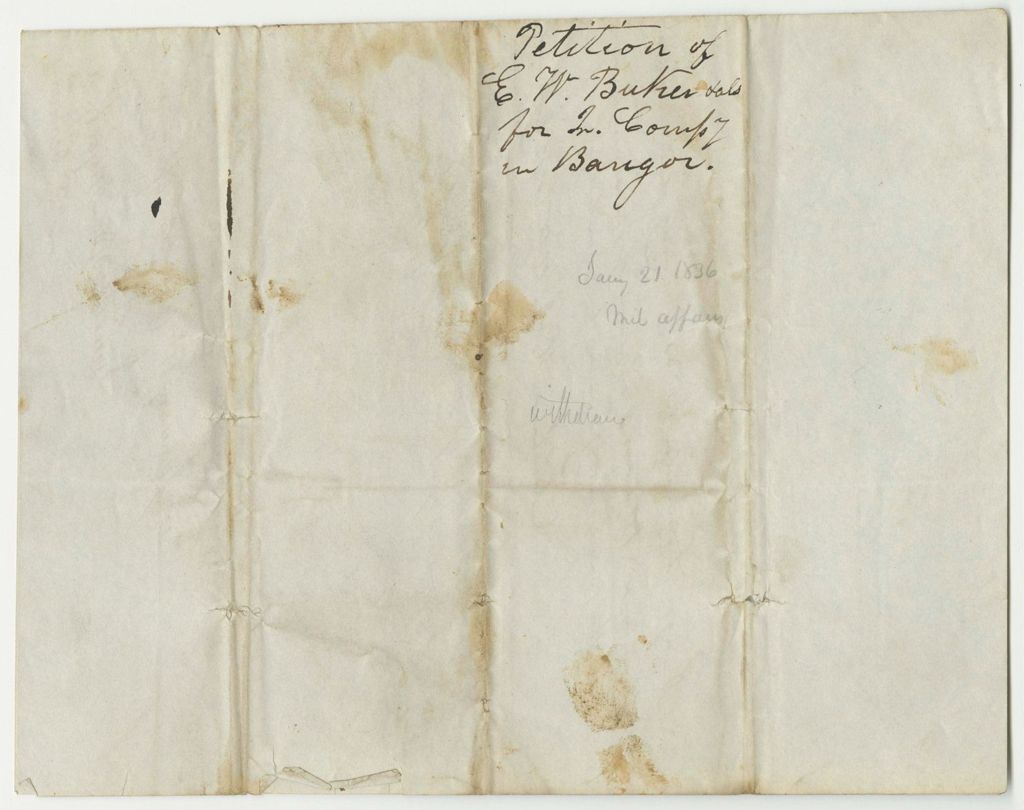 Petition of
E. W. Buker & als
for In. Compy
in Bangor.
Jany 21 1836
Mil affairs
withdraw